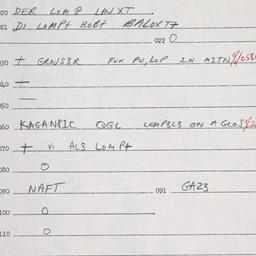 020 DER LOMP LAUXT
021 DI LOMPT HOBT BALOXTZ
022 O
030 + GROUS3R FUN PU,LOP IN MITN
040 —
050 —
060 KAGANSIC QGL LOMP3LS ON A GLOS
070 + VI AL3 LOMPT
080 O
090 NAFT 091 GAZ3
100 O
110 O